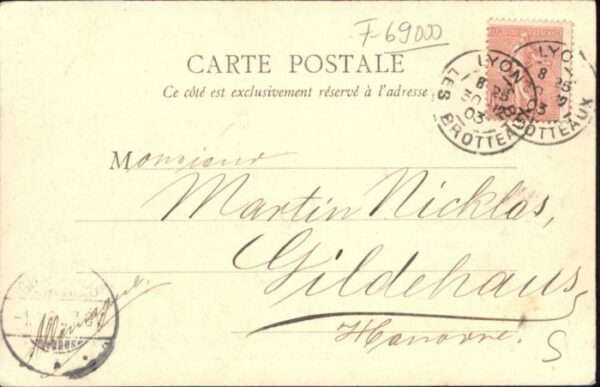 F-69000
CARTE POSTALE
Ce côté est exclusivement réservé à l'adresse
LYON
8 25
30 12
03
LES BROTTEAUX
LYON
8 25
03
BROTTEAUX
Monsieur
Martin Nicklas,
Gildehaus,
Hanovre.
Allemagne.
S